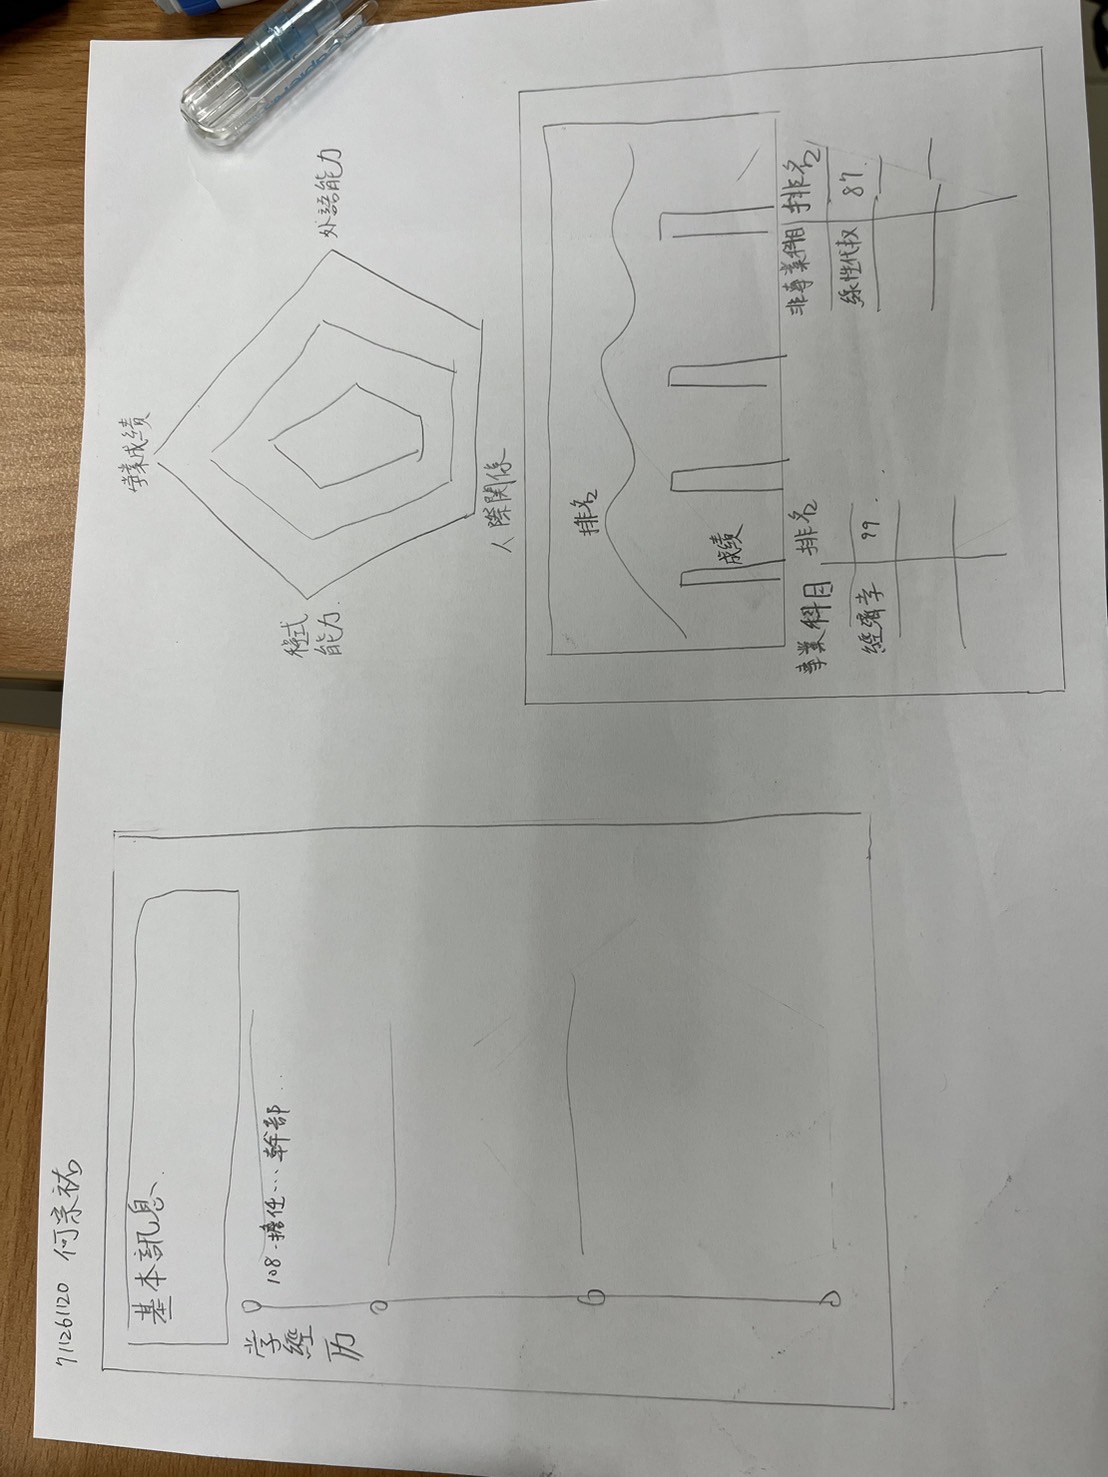 711261120 何宗祐
基本訊息、
学經历
108-擔任…幹部…
學業成績
外語能力
人際關係
程式能力.
排名
成績
專業科目 排名
經濟李 99.
非專業科目 排名
線性代权 87.